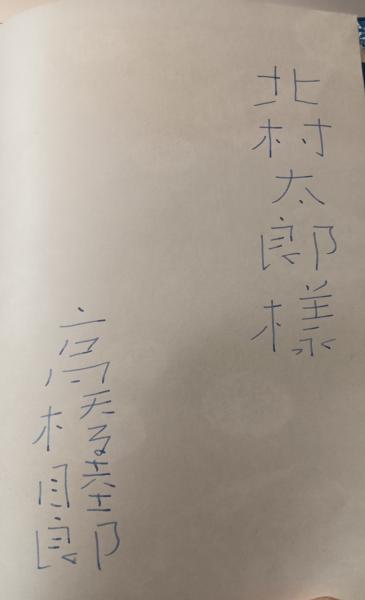 北村太郎様
高橋睦郎